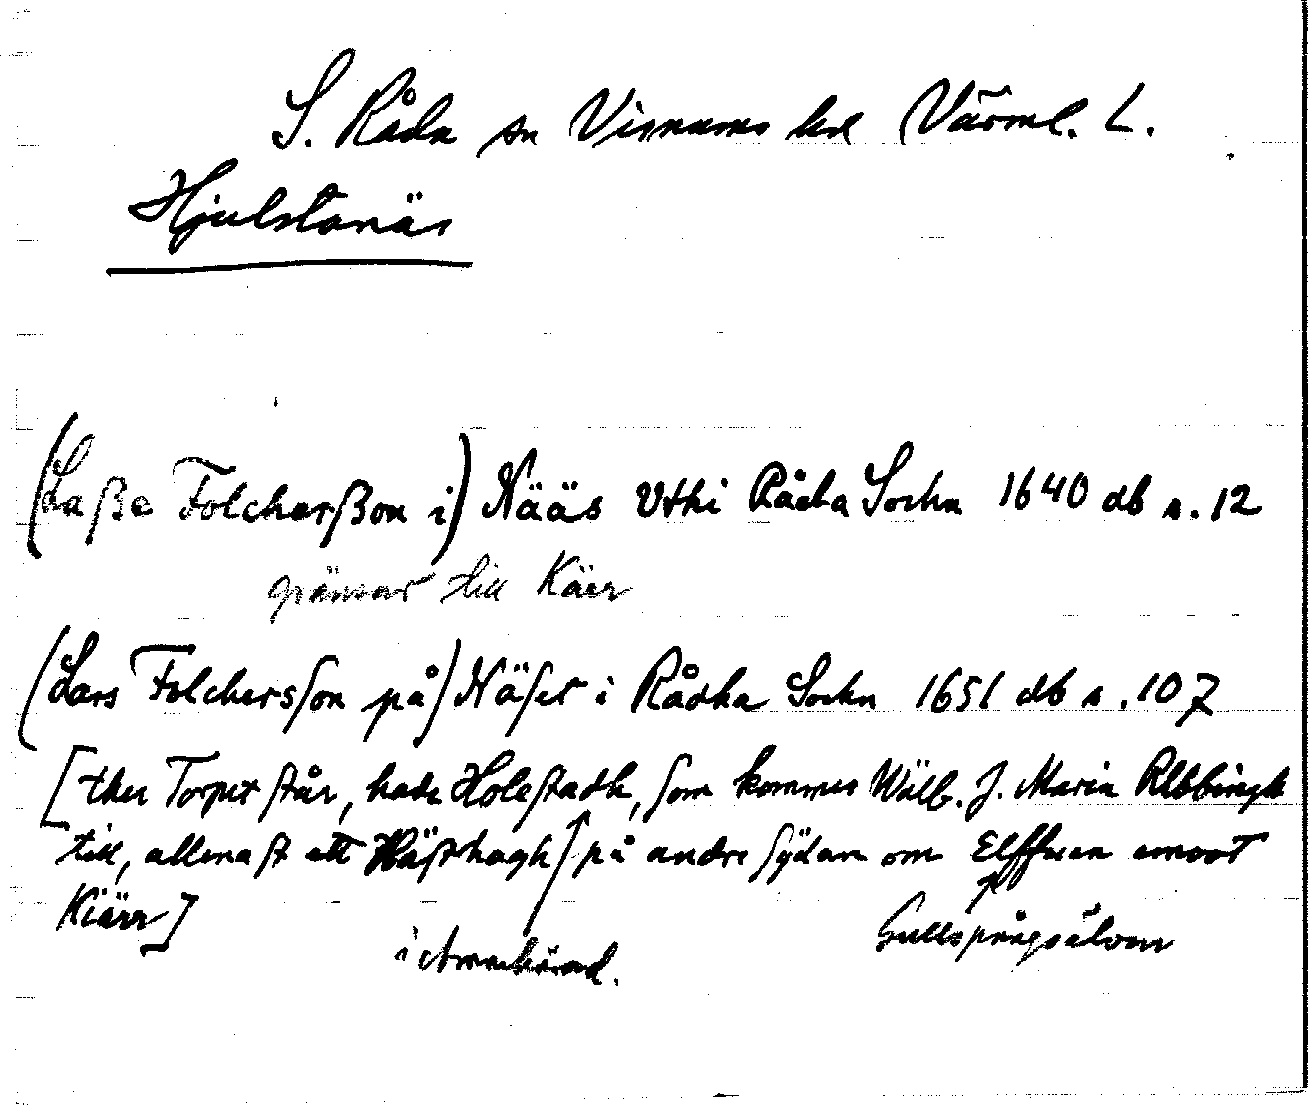 S. Råda sn Visnums hd Värml. L.
Hjulstanäs
(Laße Folcharßon i) Nääs Vthi Rådha Sochn 1640 db s. 12
gränsar till Käer
(Lars Folchersson på) Näset i Rådha Sochn 1651 db s. 107
[ther Torpet står, hade Holestadh, som kommer Wälb. J. Maria Ribbingh
till, allenast ett Hästhagh på andre sydan om Elffuen emoot
Kiärr]
Gullspångsälven